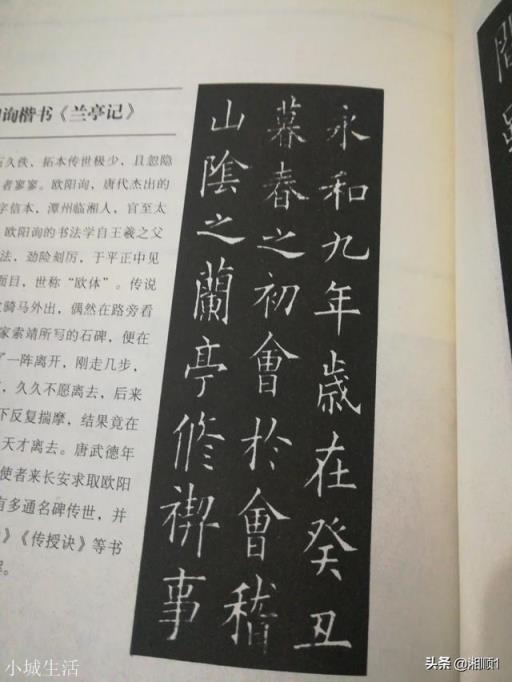 询楷书《兰亭记》
久佚、拓本传世极少，且忽隐
者寥寥。欧阳询，唐代杰出的
字信本，潭州临湘人，官至太
欧阳询的书法学自王羲之父
法，劲险刻厉，于平正中见
面目，世称“欧体”。传说
骑马外出，偶然在路旁看
家索靖所写的石碑，便在
了一阵离开，刚走几步，
，久久不愿离去，后来
下反复揣摩，结果竟在
天才离去。唐武德年
使者来长安求取欧阳
有多通名碑传世，并
》《传授诀》等书
。
永和九年歲在癸丑
暮春之初會於會稽
山陰之蘭亭脩禊事
小城生活
头条 @湘顺1